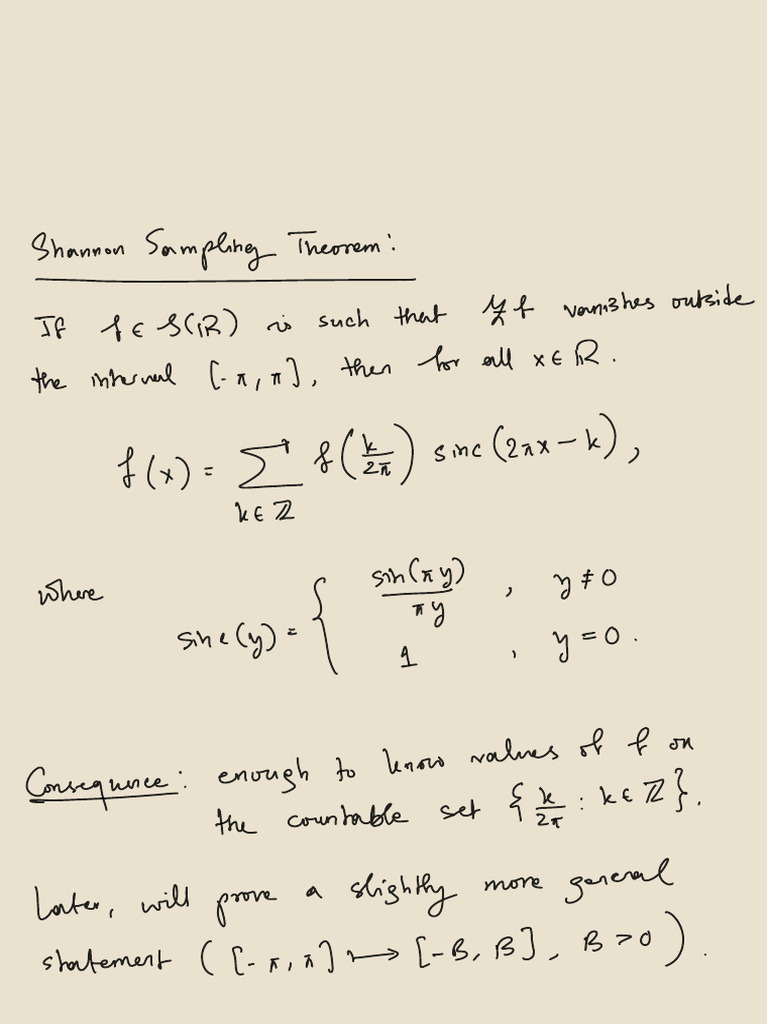 Shannon Sampling Theorem:
If f ∈ S(ℝ) is such that ℱf vanishes outside
the interval [-π, π], then for all x ∈ ℝ.
f(x) = ∑_{k∈ℤ} f(k/2π) sinc(2πx - k),
where
sinc(y) = { sin(πy)/πy , y ≠ 0
1 , y = 0.
Consequence: enough to know values of f on
the countable set {k/2π : k ∈ ℤ}.
Later, will prove a slightly more general
statement ([-π, π] ↦ [-B, B], B > 0).